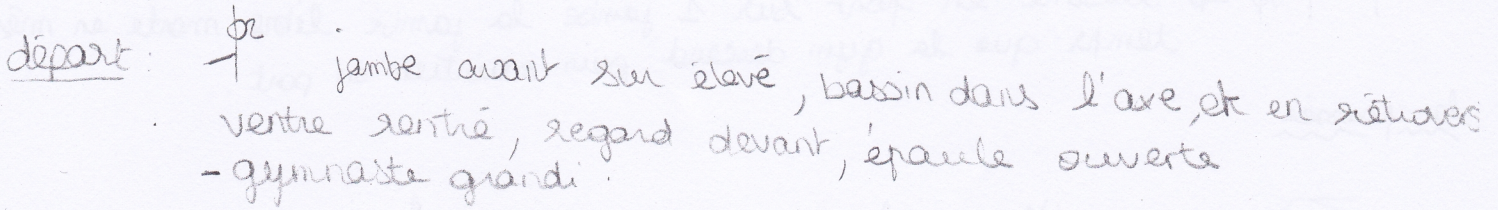 départ : jambe avant sur élevé, bassin dans l'axe, et en rétrovers
ventre rentré, regard devant, épaule ouverte
- gymnaste grandi.